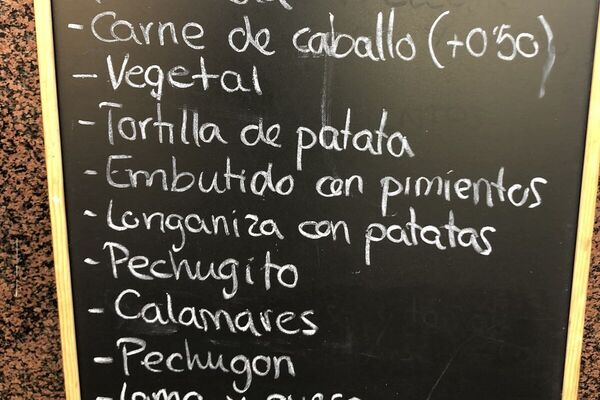 - Carne de caballo (+0'50)
- Vegetal
- Tortilla de patata
- Embutido con pimientos
- Longaniza con patatas
- Pechugito
- Calamares
- Pechugon
- Lomo y queso